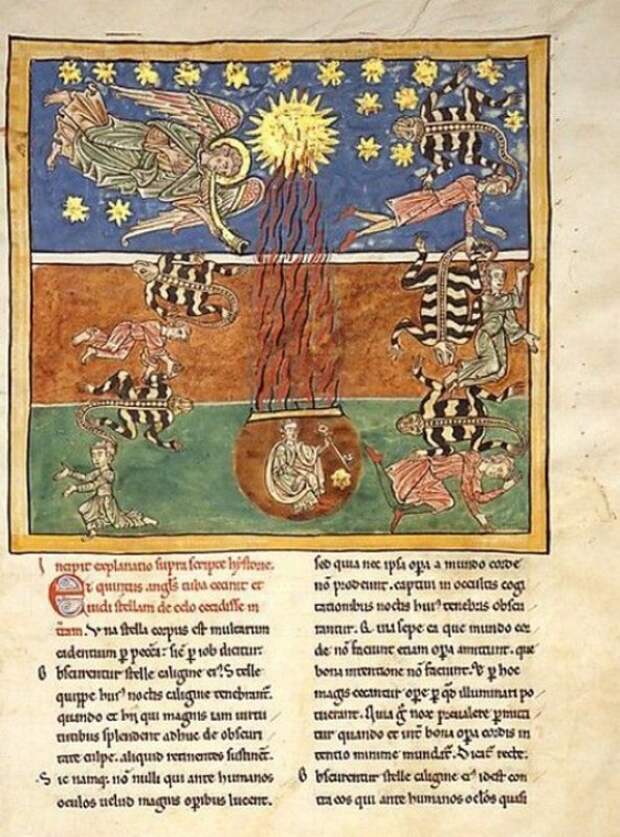 Incipit explanatio supra scripte hystorie.
Et quintus angls tuba cecinit et
vidi stellam de celo cecidisse in
tram. Vna stella corpus est multarum
cadentium p peccta: sic p iob dicitur
Obscurentur stelle caligine ei'. Stelle
quippe hui' noctis caligine tenebrant.
quando et hii qui magnis iam virtu
tutibus splendent adhuc de obscuri
tate culpe. aliquid retinentes sustinēt.
Sic namq; nō nulli qui ante humanos
oculos uelud magnis opibus lucent.
sed quia nec ipsa opa a mundo corde
nō prodeunt. captiui in occultis cogi
tationibus noctis hui' tenebris obscu
rantur. sepe ea que mundo cor
de nō faciunt etiam opa amittunt. que
bona intentione nō faciunt. p hoc
magis cecantur ope p qd illuminari po
tuerant. Quia g nox preualere pmitti
tur quando et int bona opa cordis in
tentio minime mundat. Dicat recte.
Obscurentur stelle caligine ei' idest con
tra eos qui ante humanos oclos quasi